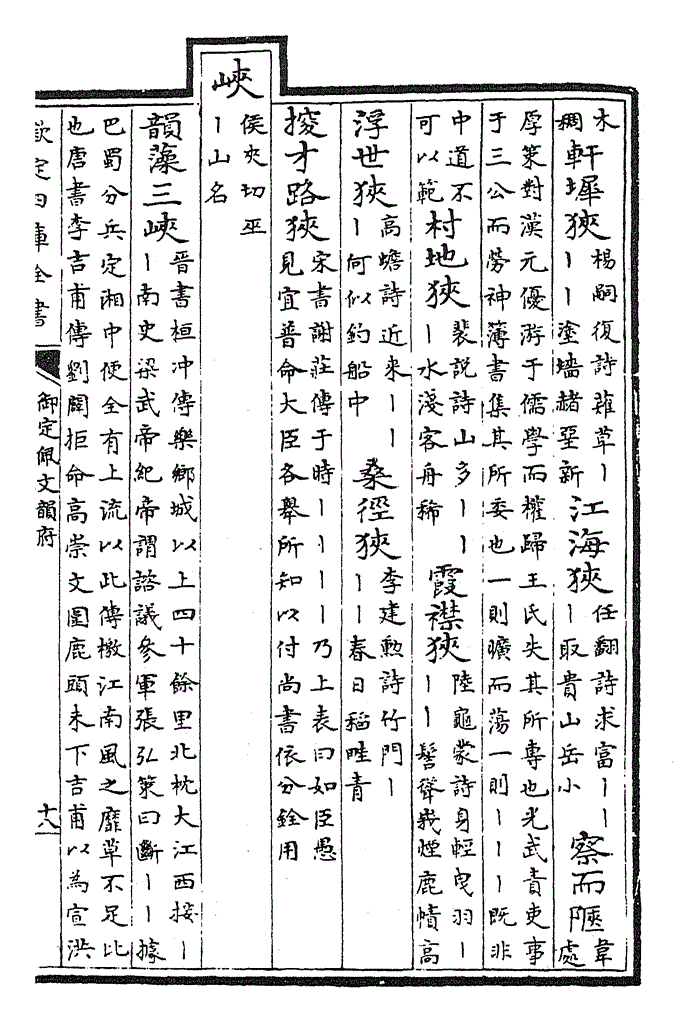 木稠軒墀狹楊嗣復詩薙草丨丨丨塗墻赭堊新江海狹任翻詩求富丨丨丨取貴山岳小察而陿韋處
厚策對漢元優游于儒學而權歸王氏失其所專也光武責吏事
于三公而勞神薄書集其所委也一則曠而蕩一則丨丨丨既非
中道不可以範村地狹裴説詩山多丨丨丨水淺客舟稀霞襟狹陸龜蒙詩身輕曳羽丨丨丨髻聳峩煙鹿幘高
浮世狹高蟾詩近來丨丨丨何似釣船中桑徑狹李建勲詩竹門丨丨丨春日稻畦青
搜才路狹宋書謝莊傳于時丨丨丨丨乃上表曰如臣愚見宜普命大臣各舉所知以付尚書依分銓用
峽侯夾切巫丨山名
韻藻三峽晉書桓冲傳樂鄉城以上四十餘里北枕大江西接丨丨南史梁武帝紀帝謂諮議參軍張弘策曰斷丨丨據
巴蜀分兵定湘中便全有上流以此傳檄江南風之靡草不足比
也唐書李吉甫傳劉闢拒命高崇文圍鹿頭未下吉甫以為宣洪
欽定四庫全書
御定佩文韻府
十八